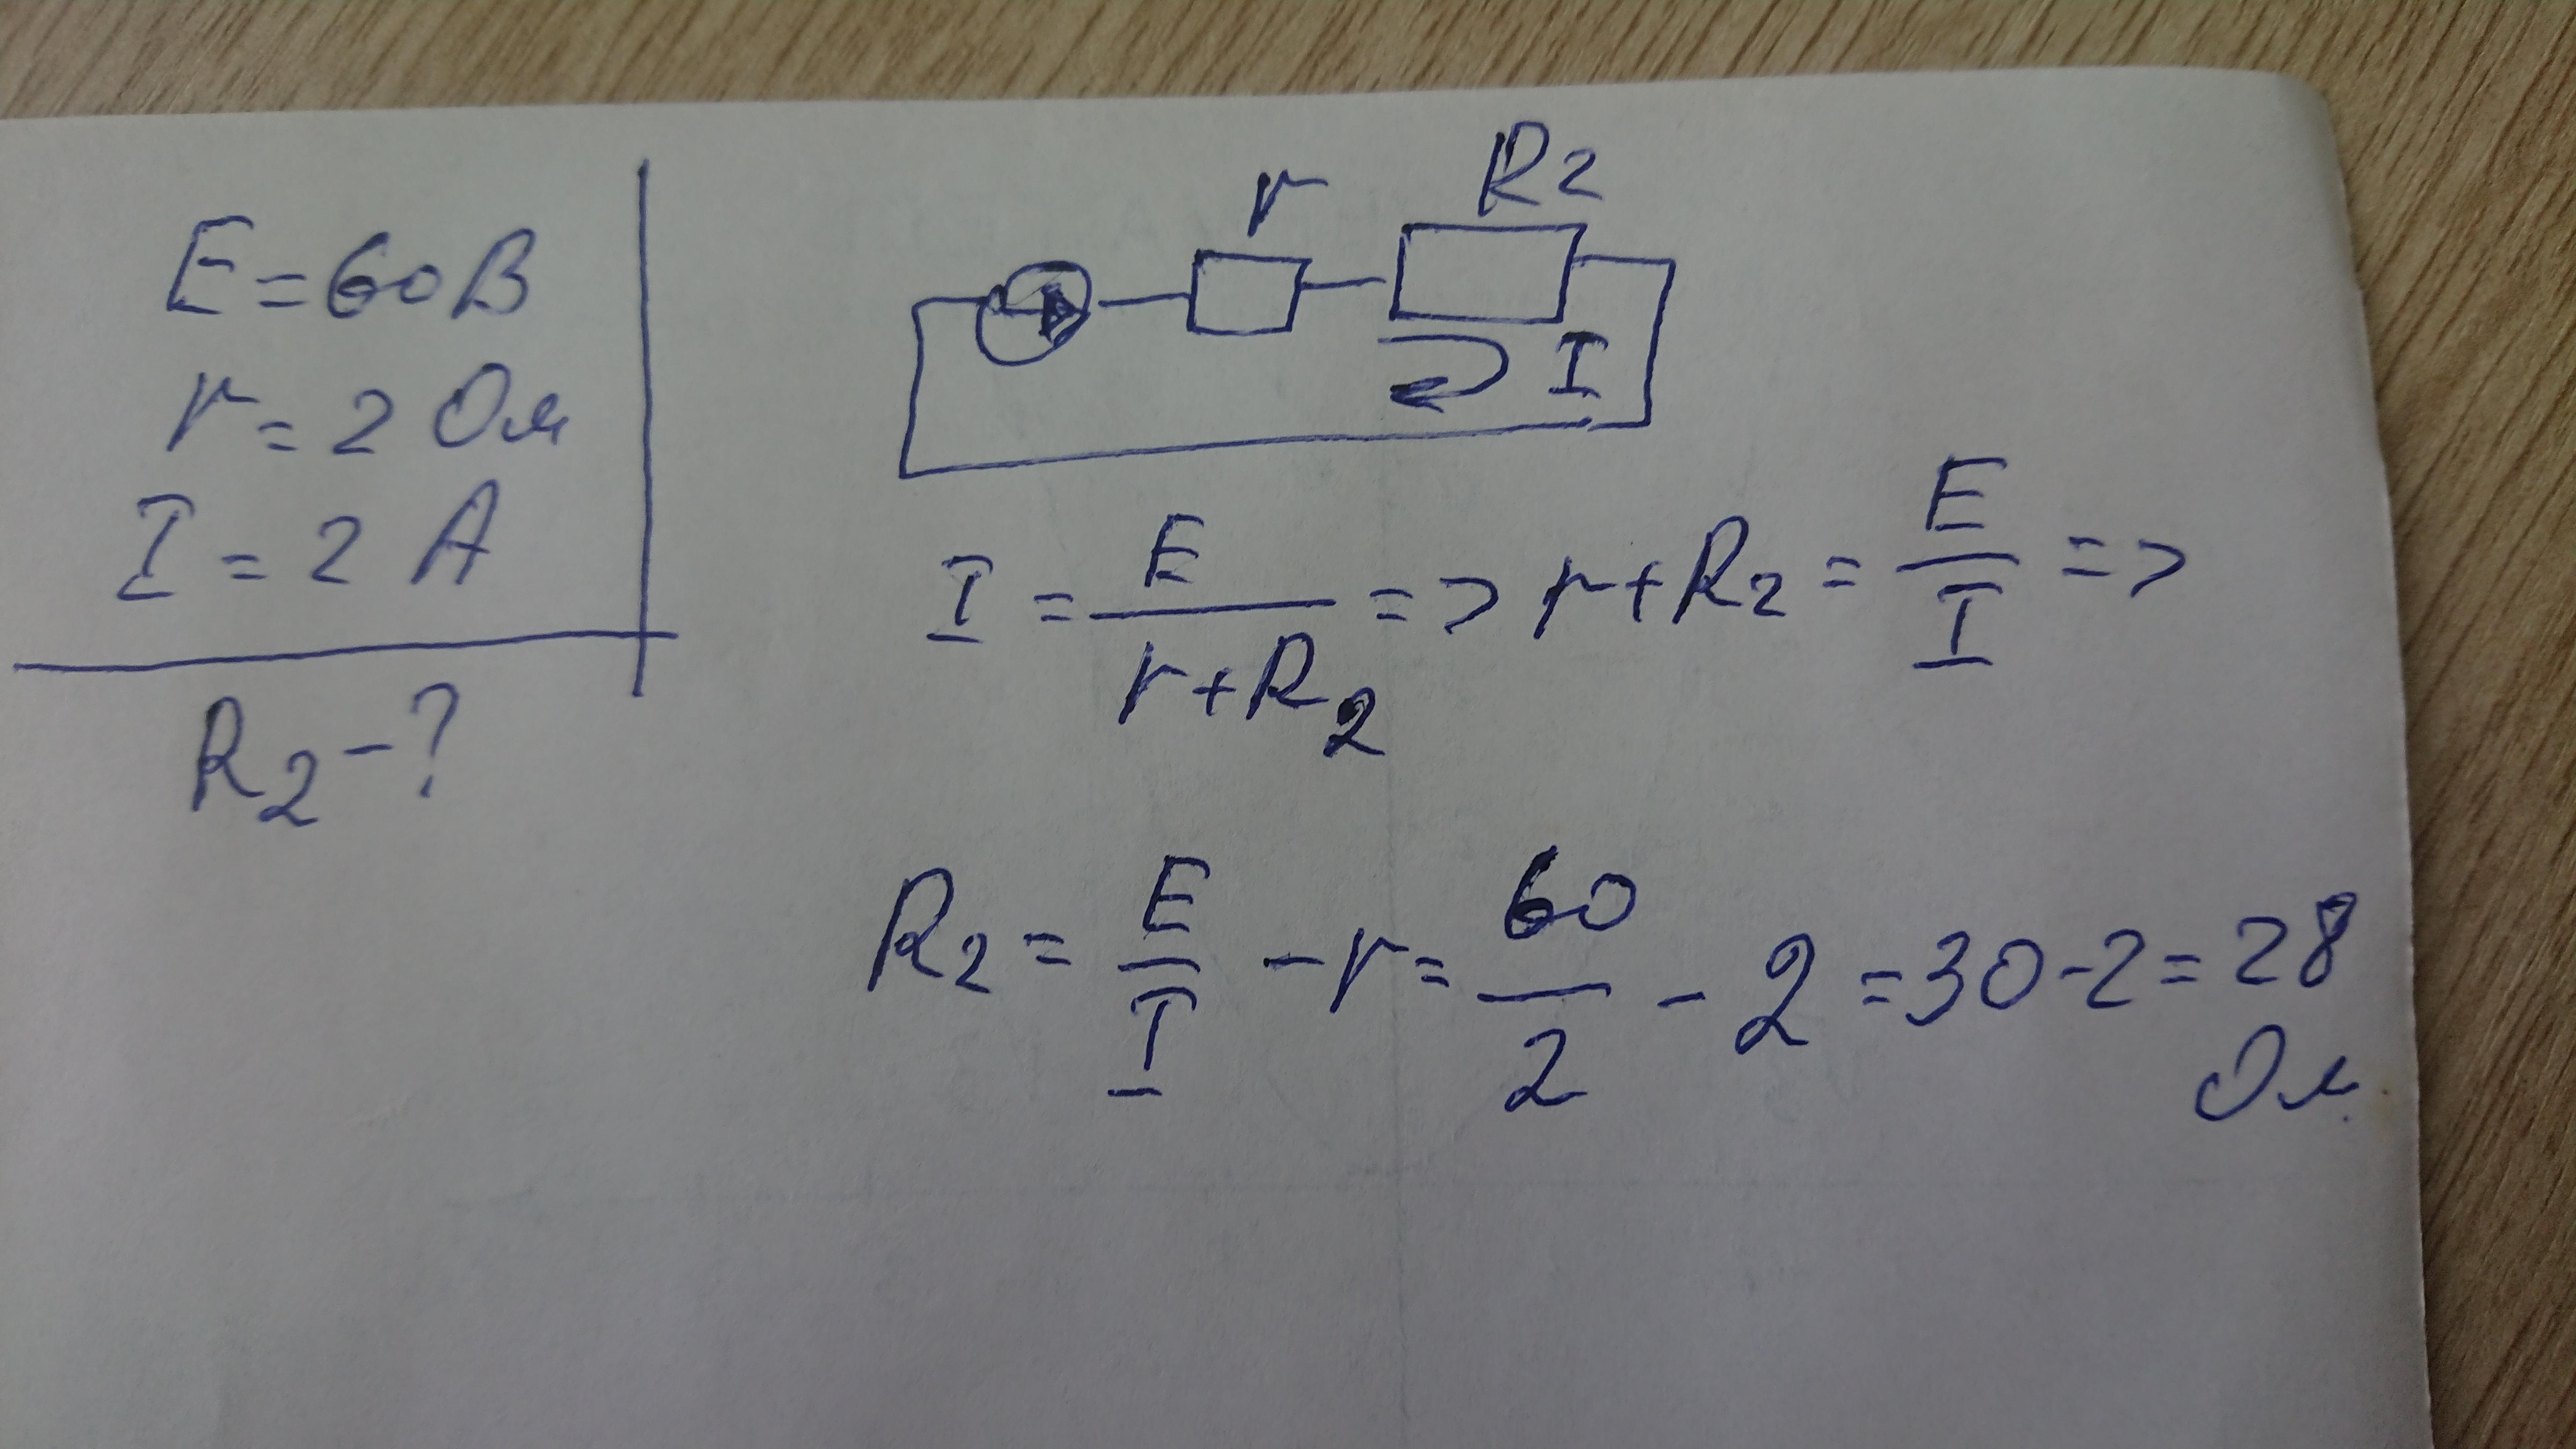 E = 60 В
r = 2 Ом
I = 2 А
R₂ - ?
r R₂
I
I = E / (r + R₂) => r + R₂ = E / I =>
R₂ = E / I - r = 60 / 2 - 2 = 30 - 2 = 28
Ом